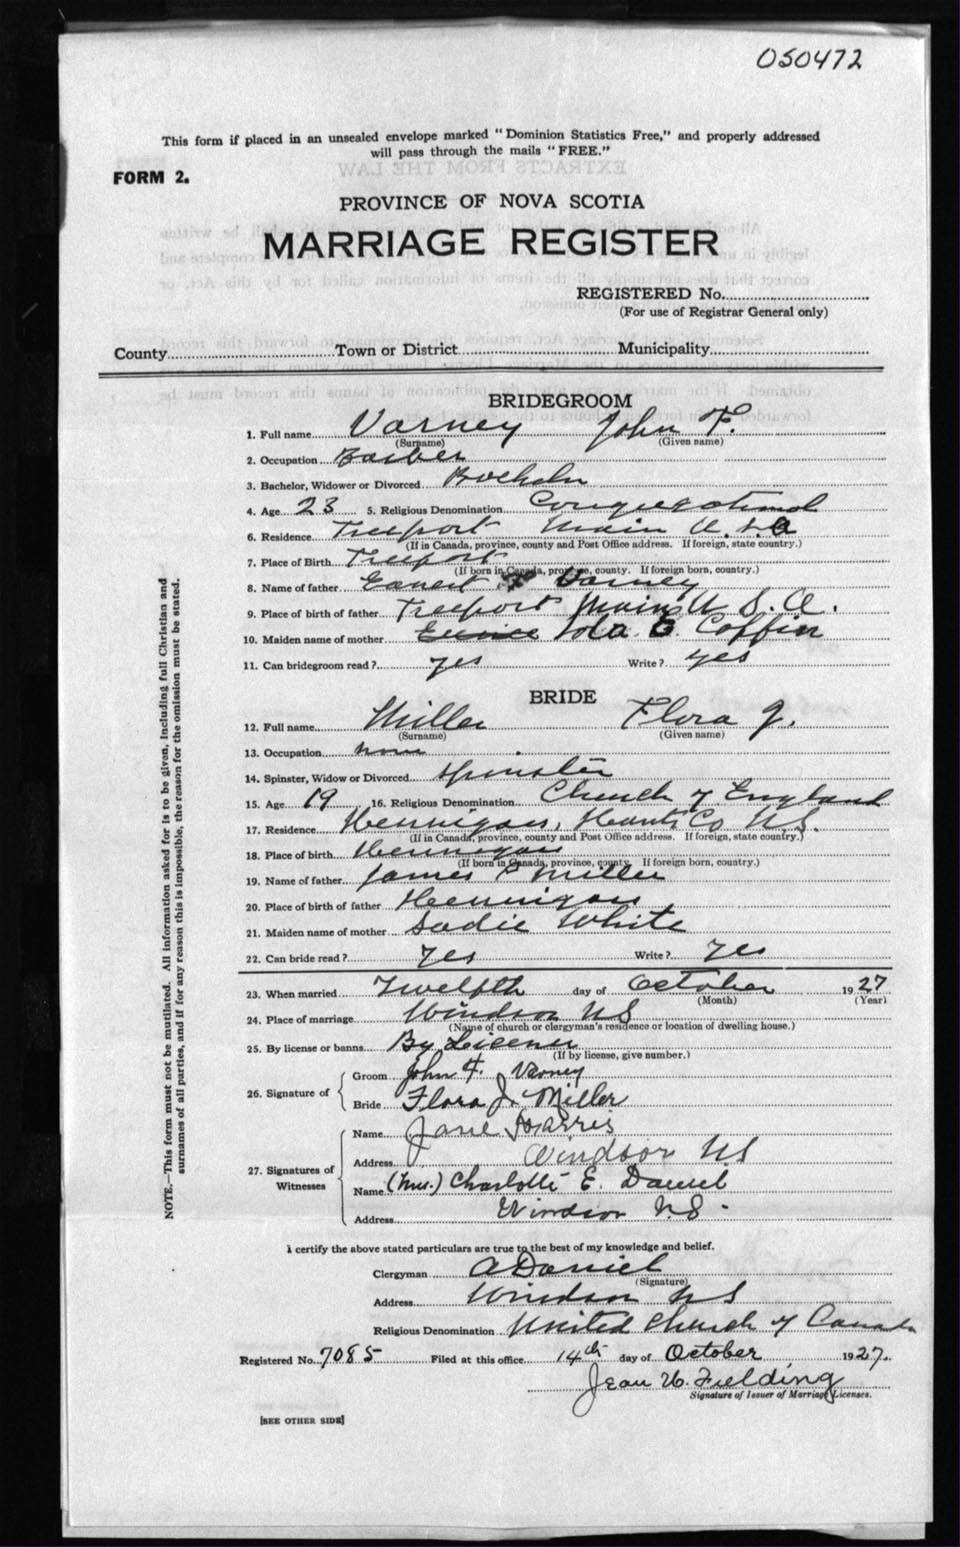 050472
This form if placed in an unsealed envelope marked "Dominion Statistics Free," and properly addressed
will pass through the mails "FREE."
FORM 2.
PROVINCE OF NOVA SCOTIA
MARRIAGE REGISTER
REGISTERED No.
(For use of Registrar General only)
County Town or District Municipality
BRIDEGROOM
1. Full name Varney John F.
(Surname) (Given name)
2. Occupation Barber
3. Bachelor, Widower or Divorced Bachelor
4. Age 23 5. Religious Denomination Congregational
6. Residence Freeport Main U.S.A
(If in Canada, province, county and Post Office address. If foreign, state country.)
7. Place of Birth Freeport
(If born in Canada, province, county. If foreign born, country.)
8. Name of father Earnest Varney
9. Place of birth of father Freeport Maine U.S.A.
10. Maiden name of mother Eunice Iola E. Coffin
11. Can bridegroom read? yes Write? yes
BRIDE
12. Full name Miller Flora J.
(Surname) (Given name)
13. Occupation none
14. Spinster, Widow or Divorced Spinster
15. Age 19 16. Religious Denomination Church of England
17. Residence Hennigar, Hants Co N.S.
(If in Canada, province, county and Post Office address. If foreign, state country.)
18. Place of birth Hennigar
(If born in Canada, province, county. If foreign born, country.)
19. Name of father James P Miller
20. Place of birth of father Hennigar
21. Maiden name of mother Sadie White
22. Can bride read? Yes Write? Yes
23. When married Twelfth day of October 1927
(Month) (Year)
24. Place of marriage Windsor NS
(Name of church or clergyman's residence or location of dwelling house.)
25. By license or banns By License
(If by license, give number.)
26. Signature of
Groom John F. Varney
Bride Flora J. Miller
27. Signatures of Witnesses
Name Jane Harris
Address Windsor NS
Name (Mrs.) Charlotte E. Daniel
Address Windsor N.S.
I certify the above stated particulars are true to the best of my knowledge and belief.
Clergyman A Daniel
(Signature)
Address Windsor NS
Religious Denomination United Church of Canada
Registered No. 7085 Filed at this office 14th day of October 1927.
Jean W. Fielding
Signature of Issuer of Marriage Licenses.
[SEE OTHER SIDE]
NOTE.—This form must not be mutilated. All information asked for is to be given, including full Christian and
surnames of all parties, and if for any reason this is impossible, the reason for the omission must be stated.